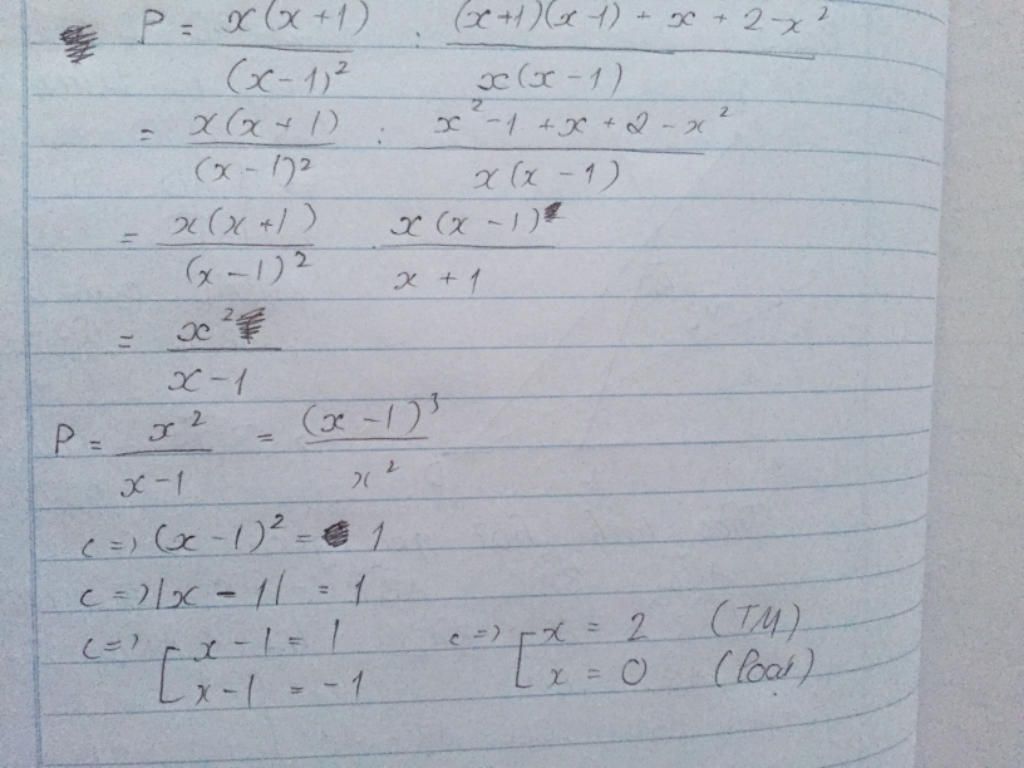 P = x(x+1)/(x-1)² : ((x+1)(x-1) + x + 2-x²)/(x(x-1))
= x(x+1)/(x-1)² : (x²-1+x+2-x²)/(x(x-1))
= x(x+1)/(x-1)² . x(x-1)/(x+1)
= x²/(x-1)
P = x²/(x-1) = (x-1)³/x²
<=> (x-1)² = 1
<=> |x-1| = 1
<=> [x-1 = 1 <=> [x = 2 (TM)
x-1 = -1 x = 0 (loại)